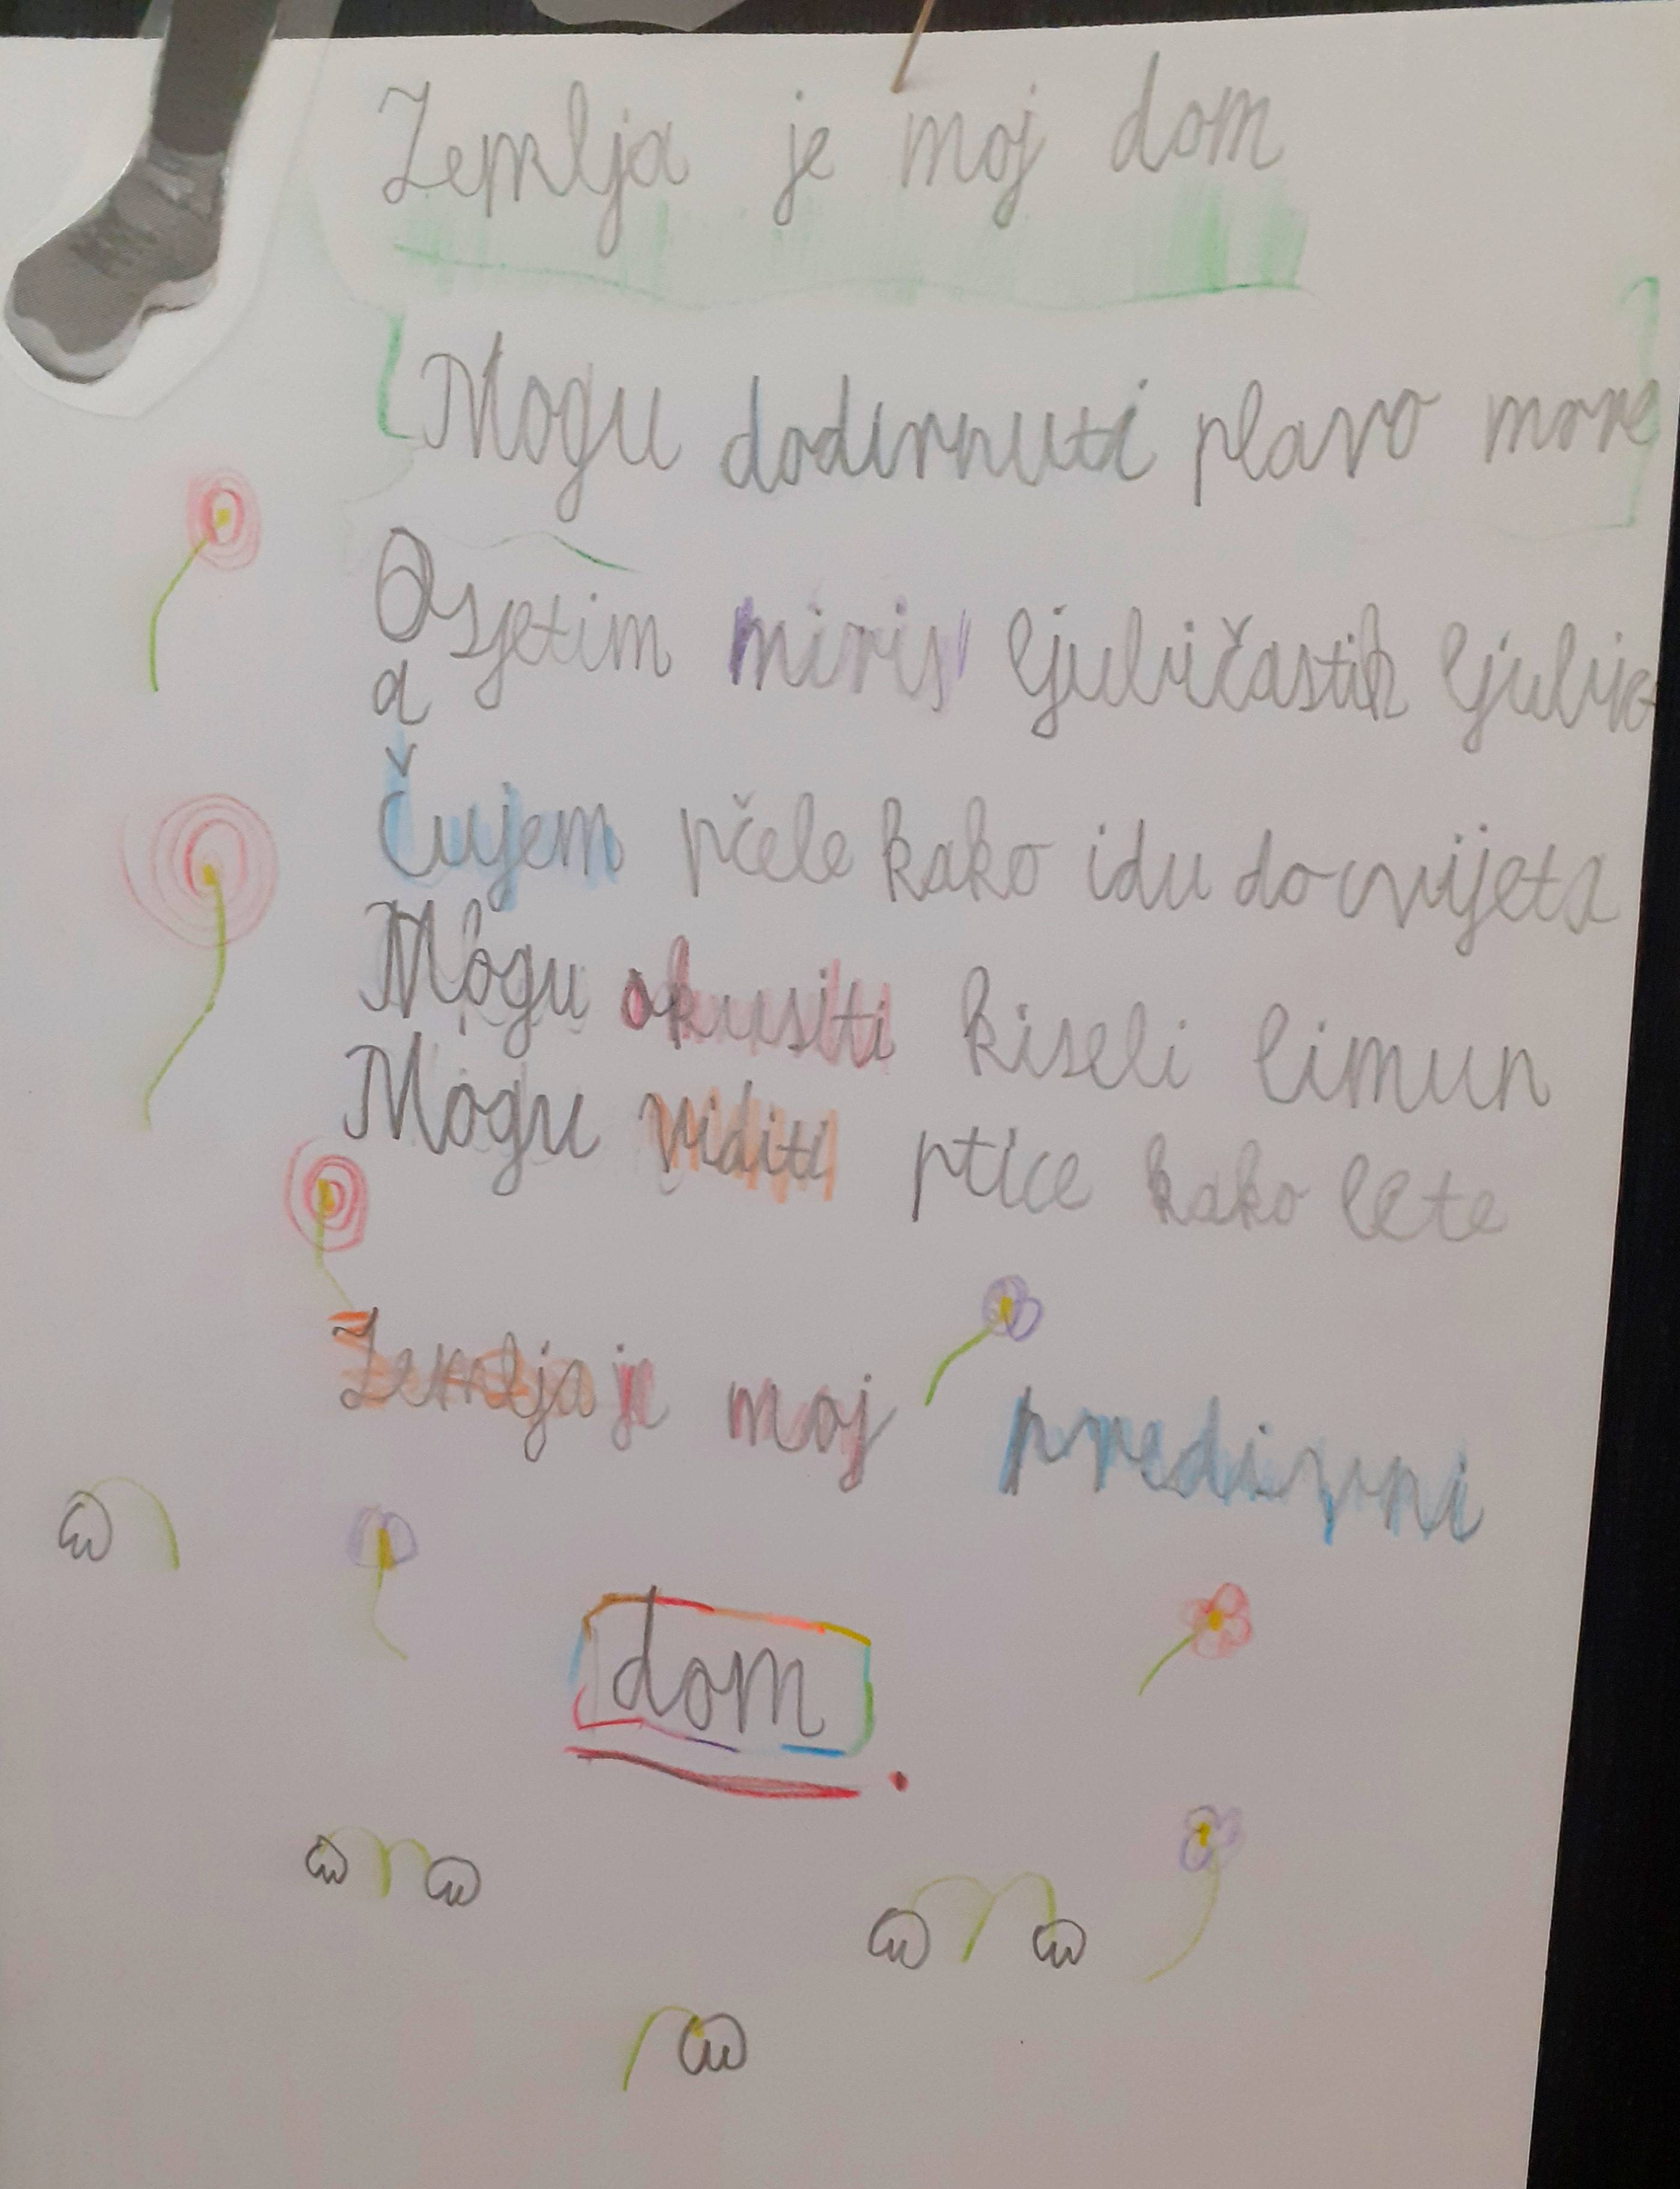 Zemlja je moj dom
Mogu dodirnuti plavo more
Osjetim miris ljubičastih ljubic
a
Čujem pčele kako idu do cvijeta
Mogu okusiti kiseli limun
Mogu viditi ptice kako lete
Zemlja je moj predivni
dom.